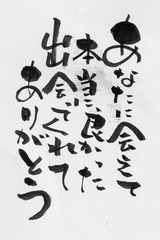 あなたに会えて
本当に良かった
出会ってくれて
ありがとう